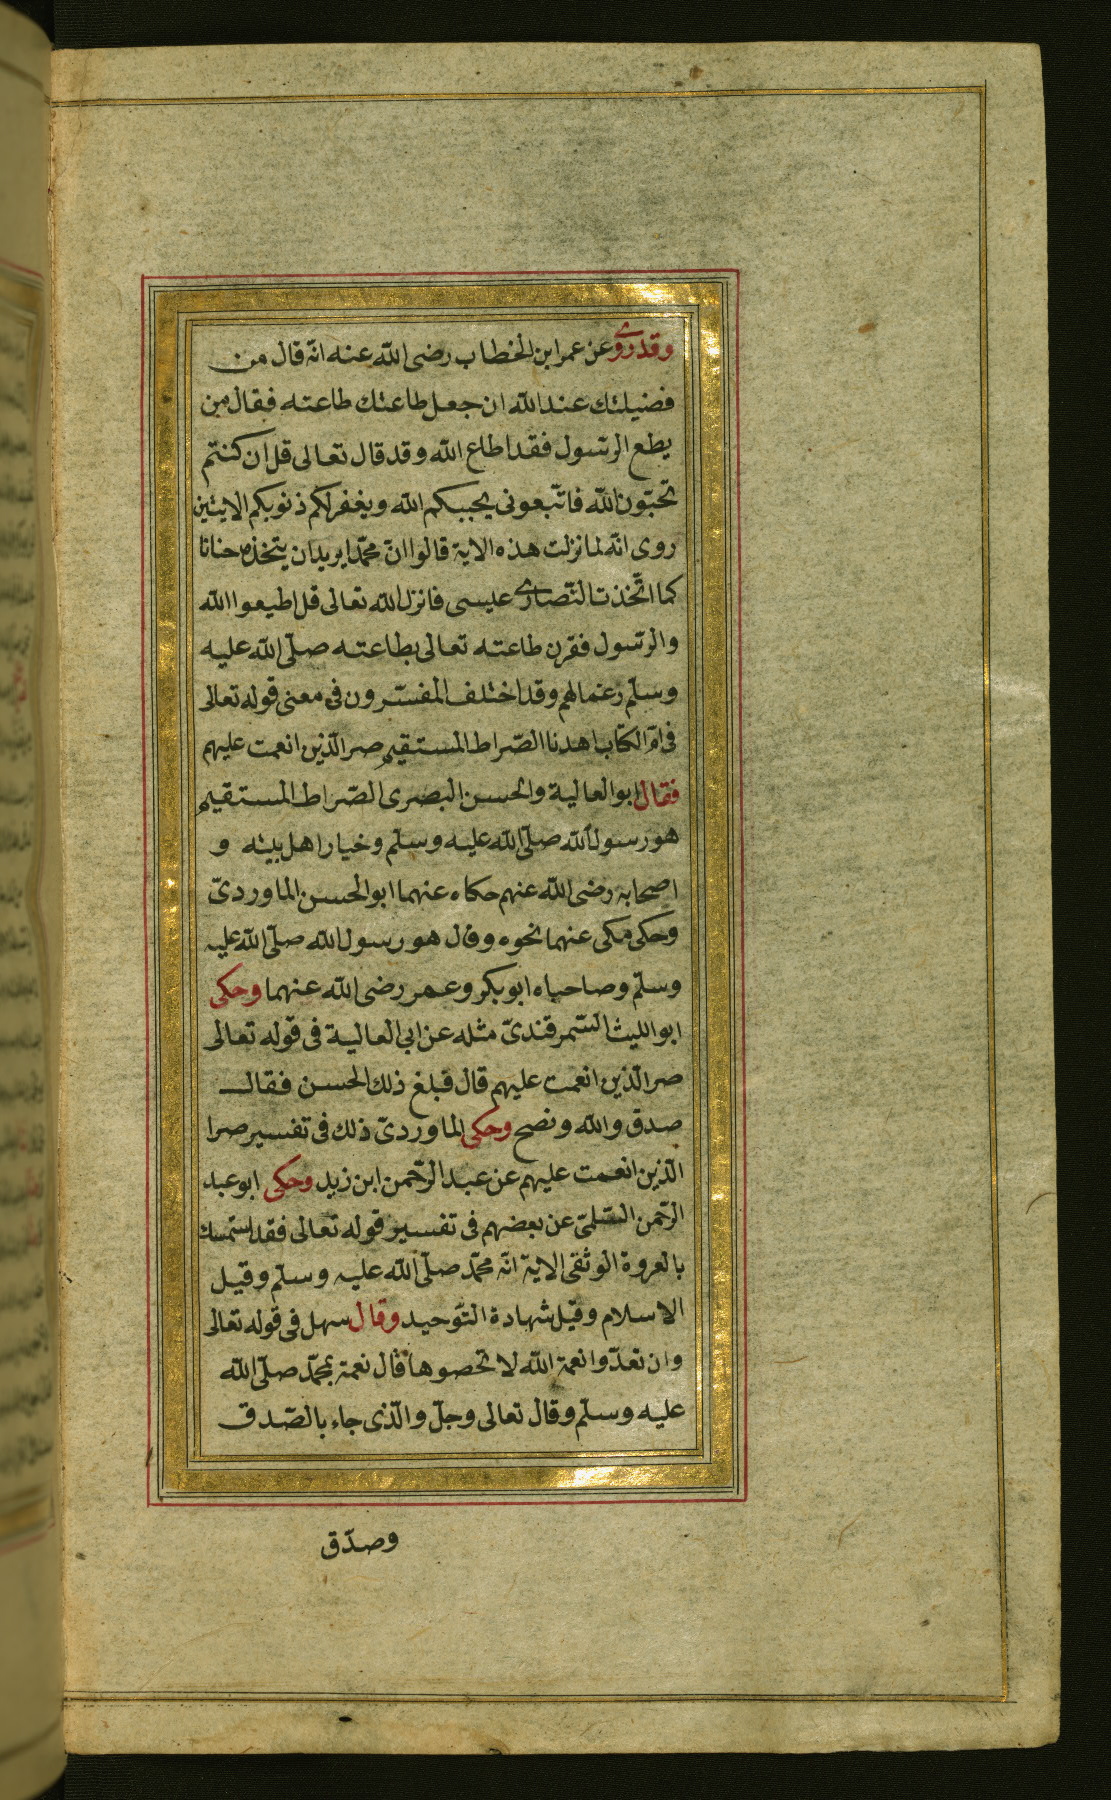 وقد روى عن عمر ابن الخطاب رضى الله عنه انّه قال من
فضيلتك عند الله ان جعل طاعتك طاعته فقال من
يطع الرّسول فقد اطاع الله وقد قال تعالى قل ان كنتم
تحبّون الله فاتّبعونى يحببكم الله ويغفر لكم ذنوبكم الايتين
روى انّه لما نزلت هذه الاية قالوا انّ محمّدا يريد ان يتخذه حنانا
كما اتّخذت النّصارى عيسى فانزل الله تعالى قل اطيعوا الله
والرّسول فقرن طاعته تعالى بطاعته صلّى الله عليه
وسلّم رغما لهم وقد اختلف المفسّرون فى معنى قوله تعالى
فى امّ الكتاب اهدنا الصّراط المستقيم صر الّذين انعمت عليهم
فقال ابو العالية والحسن البصرى الصّراط المستقيم
هو رسول الله صلّى الله عليه وسلّم وخيار اهل بيته و
اصحابه رضى الله عنهم حكاه عنهما ابو الحسن الماوردىّ
وحكى مكى عنهما نحوه وقال هو رسول الله صلّى الله عليه
وسلّم وصاحباه ابو بكر وعمر رضى الله عنهما وحكى
ابو الليث السّمرقندىّ مثله عن ابى العالية فى قوله تعالى
صر الّذين انعمت عليهم قال فبلغ ذلك الحسن فقال
صدق والله ونصح وحكى الماوردىّ ذلك فى تفسير صرا
الّذين انعمت عليهم عن عبد الرّحمن ابن زيد وحكى ابو عبد
الرّحمن السّلمىّ عن بعضهم فى تفسير قوله تعالى فقد استمسك
بالعروة الوثقى الاية انّه محمّد صلّى الله عليه وسلّم وقيل
الاسلام وقيل شهادة التّوحيد وقال سهل فى قوله تعالى
وان تعدّوا نعمة الله لا تحصوها قال نعمة بمحمّد صلّى الله
عليه وسلّم وقال تعالى وجلّ والّذى جاء بالصّدق
وصدّق